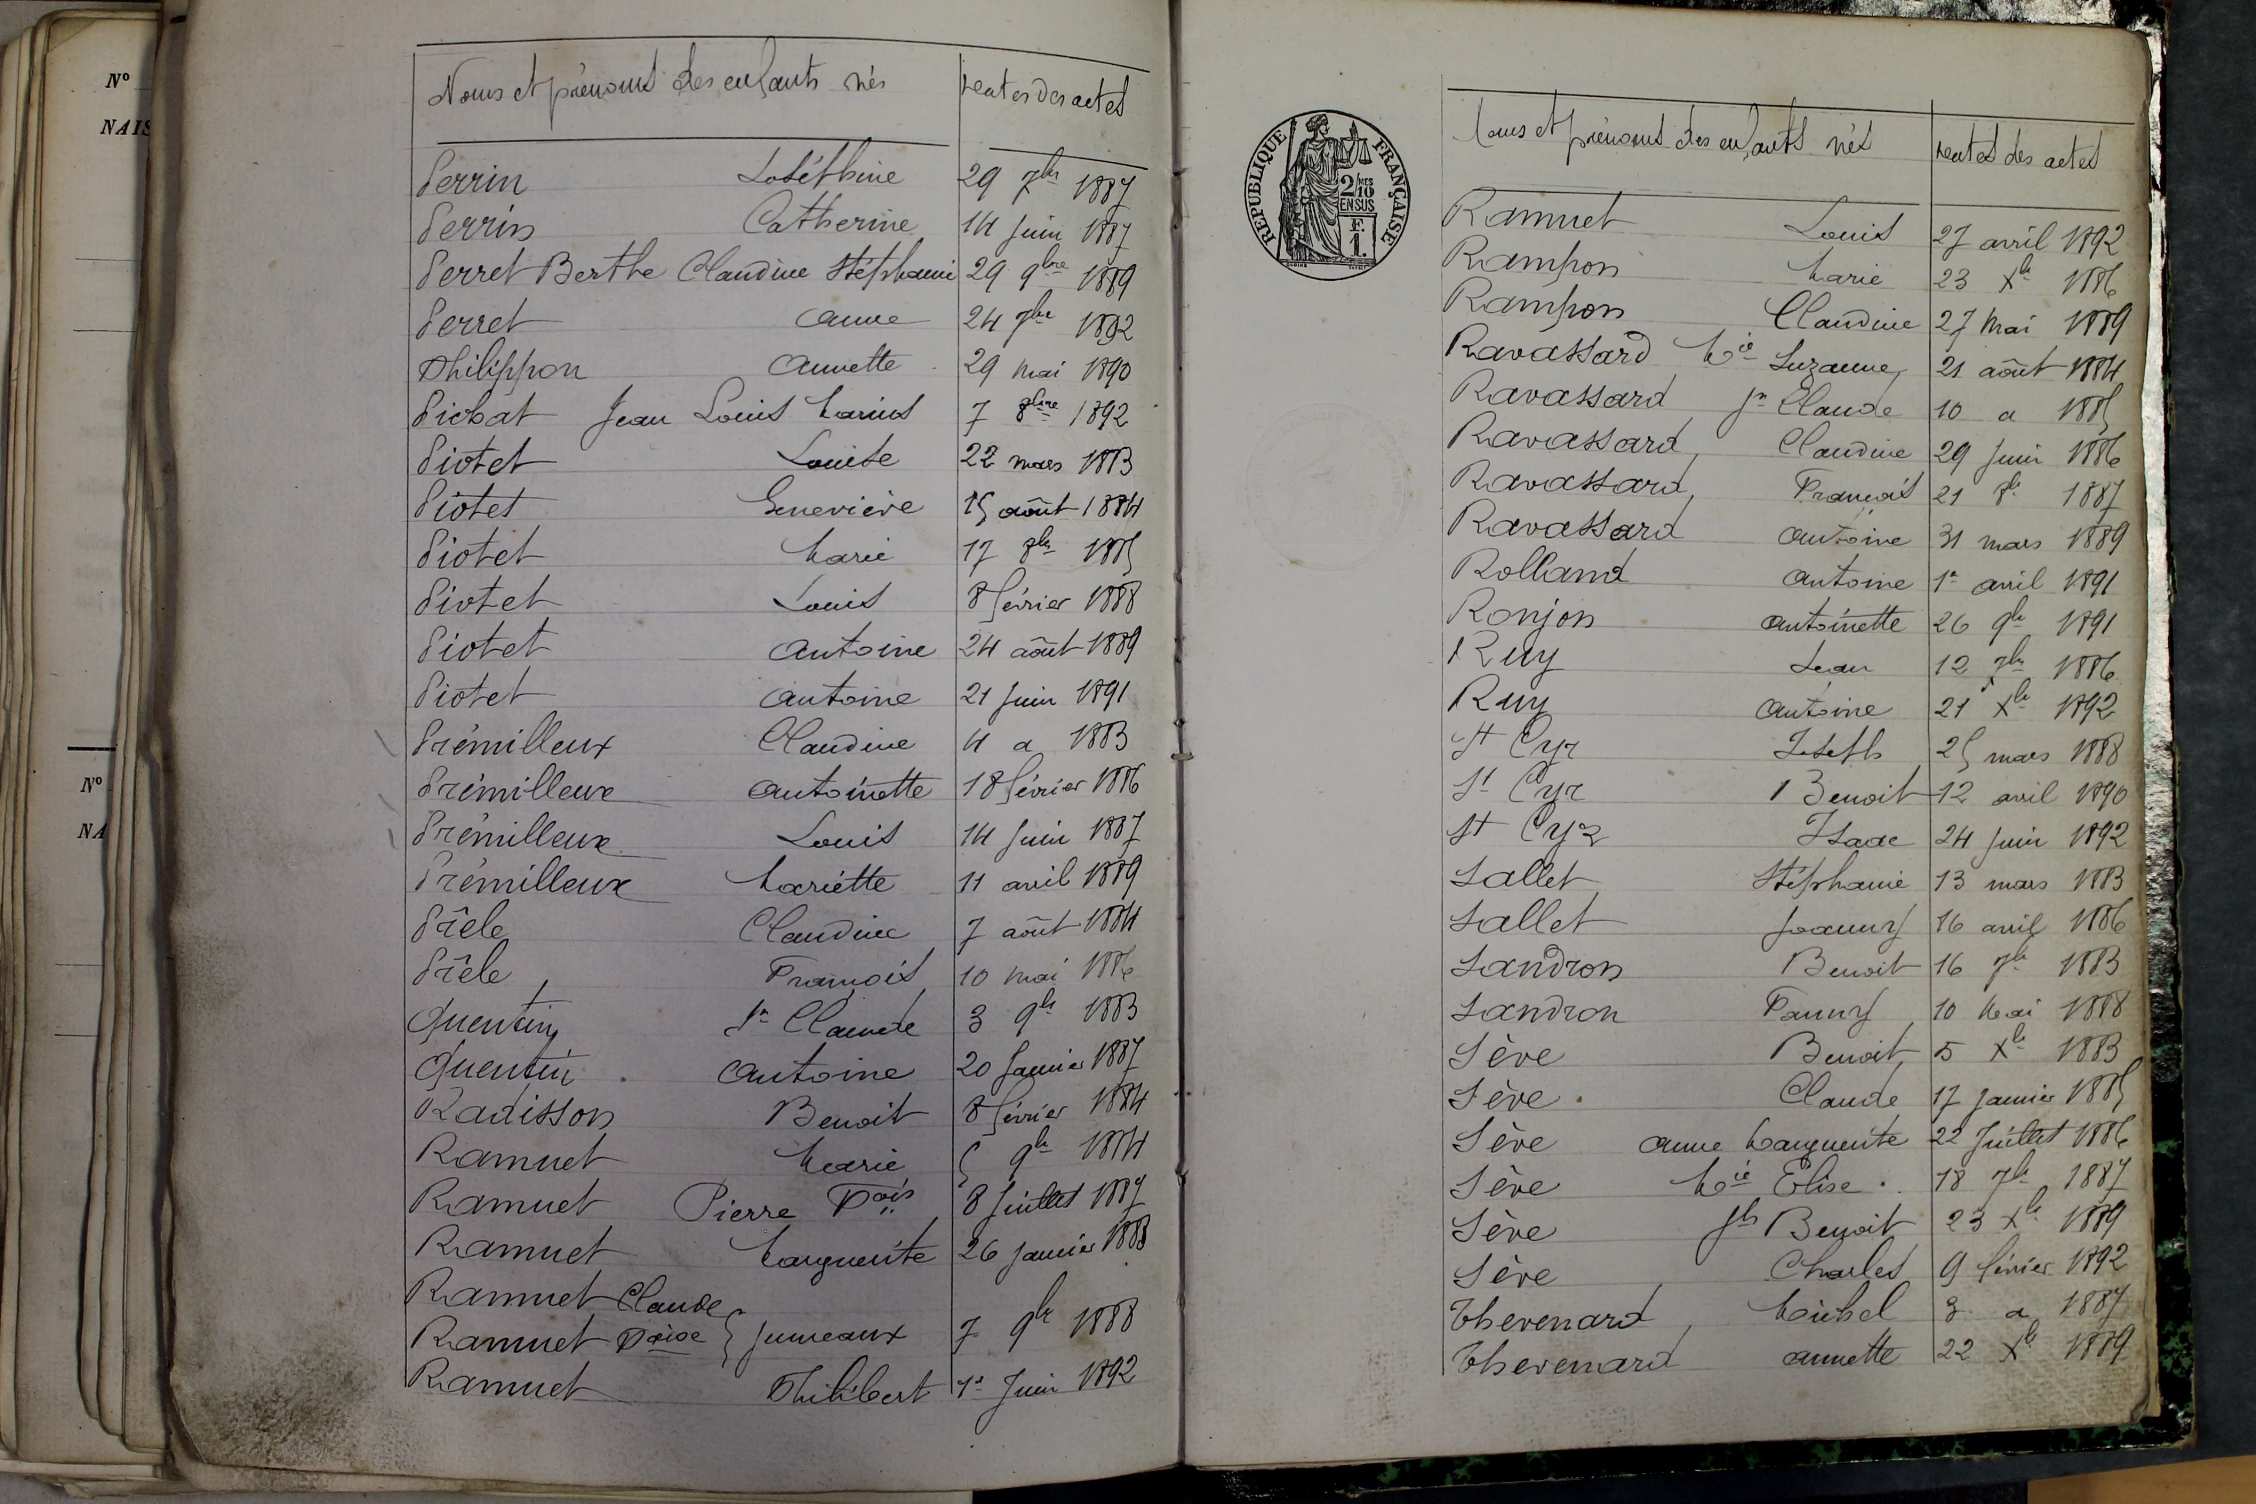 Nº
NAIS
Nº
NA
Noms et prénoms des enfants nés Dates des actes
Perrin Joséphine 29 7bre 1887
Perrin Catherine 14 Juin 1887
Perret Berthe Claudine Stéphanie 29 9bre 1889
Perret Anne 24 7bre 1892
Philippon Annette 29 Mai 1890
Pichat Jean Louis Marius 7 8bre 1892
Piotet Louise 22 mars 1883
Piotet Geneviève 15 août 1884
Piotet Marie 17 8bre 1885
Piotet Louis 8 février 1888
Piotet Antoine 24 août 1889
Piotet Antoine 21 Juin 1891
Prémilleux Claudine 4 a 1883
Prémilleux Antoinette 18 février 1886
Prémilleux Louis 14 Juin 1887
Prémilleux Mariette 11 avril 1889
Prêle Claudine 7 août 1884
Prêle François 10 Mai 1886
Quentin Jn Claude 3 9bre 1883
Quentin Antoine 20 Janvier 1887
Radisson Benoit 8 février 1884
Ramuet Marie 5 9bre 1884
Ramuet Pierre Fois 8 Juillet 1887
Ramuet Marguerite 26 Janvier 1888
Ramuet Claude
Ramuet Foise } Jumeaux 7 9bre 1888
Ramuet Philibert 1er Juin 1892
RÉPUBLIQUE FRANÇAISE
2/10MES
EN SUS
F.
1.
Noms et prénoms des enfants nés Dates des actes
Ramuet Louis 27 avril 1892
Rampon Marie 23 Xbre 1886
Rampon Claudine 27 Mai 1889
Ravassard Mie Suzanne 21 août 1884
Ravassard Jn Claude 10 a 1885
Ravassard Claudine 29 Juin 1886
Ravassard François 21 8bre 1887
Ravassard Antoine 31 mars 1889
Rolland Antoine 1er avril 1891
Ronjon Antoinette 26 9bre 1891
Ruy Jean 12 7bre 1886
Ruy Antoine 21 Xbre 1892
St Cyr Joseph 25 mars 1888
St Cyr Benoit 12 avril 1890
St Cyr Isaac 24 Juin 1892
Sallet Stéphanie 13 mars 1883
Sallet Joanny 16 avril 1886
Sandron Benoit 16 7bre 1883
Sandron Fanny 10 Mai 1888
Sève Benoit 5 Xbre 1883
Sève Claude 17 Janvier 1885
Sève Anne Marguerite 22 Juillet 1886
Sève Mie Élise 18 7bre 1887
Sève Jh Benoit 23 Xbre 1889
Sève Charles 9 février 1892
Thevenard Michel 3 a 1887
Thevenard Annette 22 Xbre 1889